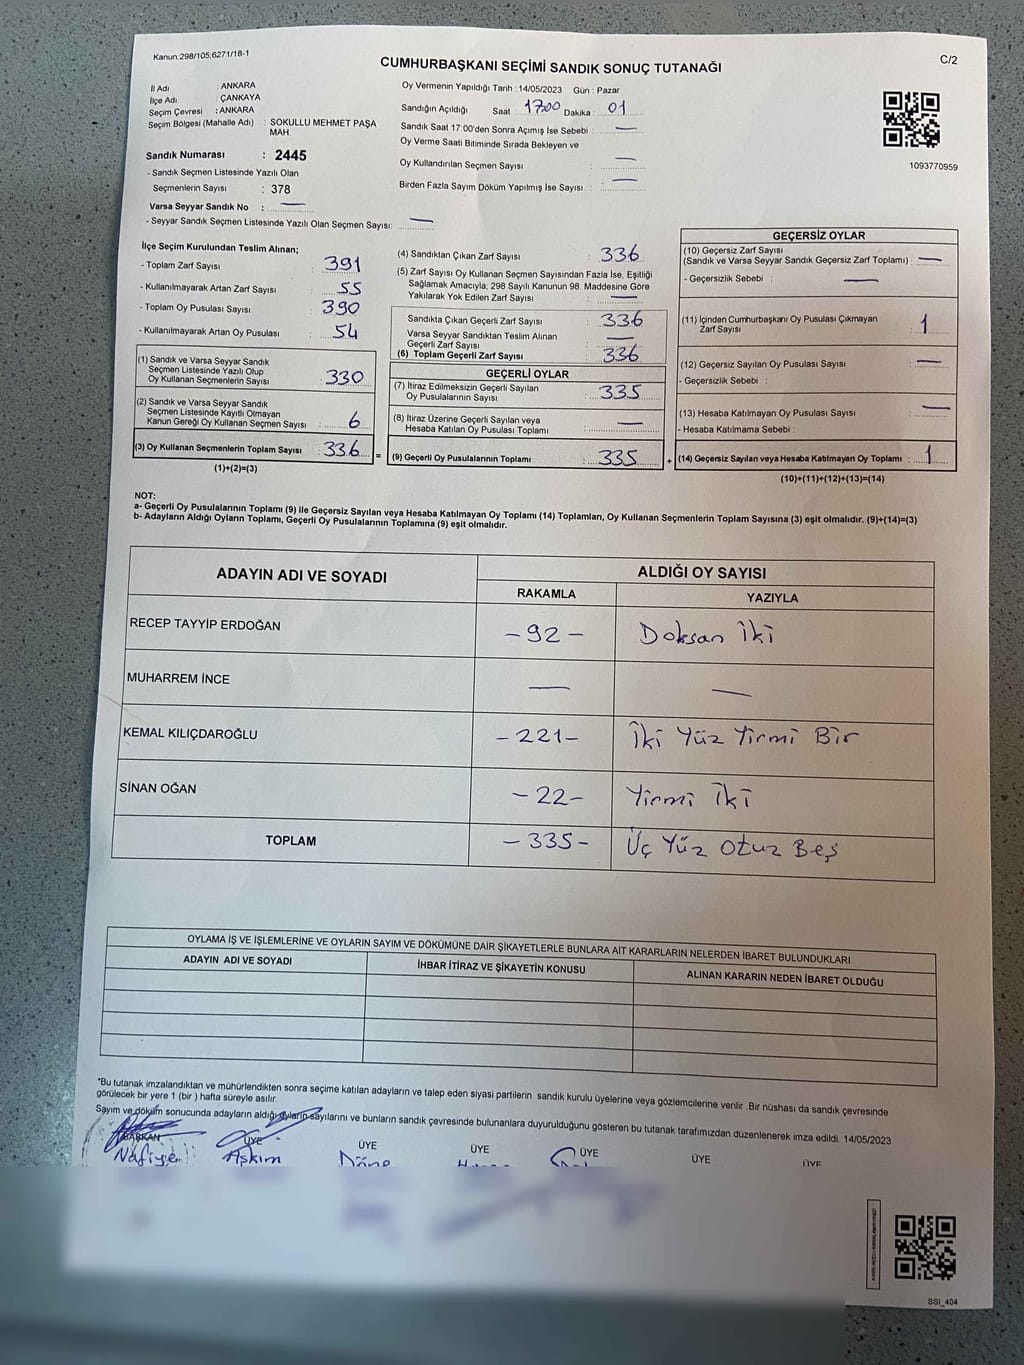 Kanun:298/105;6271/18-1
C/2
CUMHURBAŞKANI SEÇİMİ SANDIK SONUÇ TUTANAĞI
İl Adı : ANKARA
İlçe Adı : ÇANKAYA
Seçim Çevresi : ANKARA
Seçim Bölgesi (Mahalle Adı) : SOKULLU MEHMET PAŞA
MAH.
Sandık Numarası : 2445
- Sandık Seçmen Listesinde Yazılı Olan
Seçmenlerin Sayısı : 378
Varsa Seyyar Sandık No : —
- Seyyar Sandık Seçmen Listesinde Yazılı Olan Seçmen Sayısı: —
Oy Vermenin Yapıldığı Tarih : 14/05/2023 Gün : Pazar
Sandığın Açıldığı Saat 17:00 Dakika : 01
Sandık Saat 17:00'den Sonra Açımış İse Sebebi : —
Oy Verme Saati Bitiminde Sırada Bekleyen ve
Oy Kullandırılan Seçmen Sayısı : —
Birden Fazla Sayım Döküm Yapılmış İse Sayısı : —
1093770959
İlçe Seçim Kurulundan Teslim Alınan;
- Toplam Zarf Sayısı : 391
- Kullanılmayarak Artan Zarf Sayısı : 55
- Toplam Oy Pusulası Sayısı : 390
- Kullanılmayarak Artan Oy Pusulası : 54
(1) Sandık ve Varsa Seyyar Sandık
Seçmen Listesinde Yazılı Olup
Oy Kullanan Seçmenlerin Sayısı : 330
(2) Sandık ve Varsa Seyyar Sandık
Seçmen Listesinde Kayıtlı Olmayan
Kanun Gereği Oy Kullanan Seçmen Sayısı : 6
(3) Oy Kullanan Seçmenlerin Toplam Sayısı : 336
(1)+(2)=(3)
=
(4) Sandıktan Çıkan Zarf Sayısı : 336
(5) Zarf Sayısı Oy Kullanan Seçmen Sayısından Fazla İse, Eşitliği
Sağlamak Amacıyla; 298 Sayılı Kanunun 98. Maddesine Göre
Yakılarak Yok Edilen Zarf Sayısı : —
Sandıkta Çıkan Geçerli Zarf Sayısı : 336
Varsa Seyyar Sandıktan Teslim Alınan
Geçerli Zarf Sayısı : —
(6) Toplam Geçerli Zarf Sayısı : 336
GEÇERLİ OYLAR
(7) İtiraz Edilmeksizin Geçerli Sayılan
Oy Pusulalarının Sayısı : 335
(8) İtiraz Üzerine Geçerli Sayılan veya
Hesaba Katılan Oy Pusulası Toplamı : —
(9) Geçerli Oy Pusulalarının Toplamı : 335
+
GEÇERSİZ OYLAR
(10) Geçersiz Zarf Sayısı
(Sandık ve Varsa Seyyar Sandık Geçersiz Zarf Toplamı) : —
- Geçersizlik Sebebi : —
(11) İçinden Cumhurbaşkanı Oy Pusulası Çıkmayan
Zarf Sayısı : 1
(12) Geçersiz Sayılan Oy Pusulası Sayısı : —
- Geçersizlik Sebebi :
(13) Hesaba Katılmayan Oy Pusulası Sayısı : —
- Hesaba Katılmama Sebebi :
(14) Geçersiz Sayılan veya Hesaba Katılmayan Oy Toplamı : 1
(10)+(11)+(12)+(13)=(14)
NOT:
a- Geçerli Oy Pusulalarının Toplamı (9) ile Geçersiz Sayılan veya Hesaba Katılmayan Oy Toplamı (14) Toplamları, Oy Kullanan Seçmenlerin Toplam Sayısına (3) eşit olmalıdır. (9)+(14)=(3)
b- Adayların Aldığı Oyların Toplamı, Geçerli Oy Pusulalarının Toplamına (9) eşit olmalıdır.
ADAYIN ADI VE SOYADI ALDIĞI OY SAYISI
RAKAMLA YAZIYLA
RECEP TAYYİP ERDOĞAN - 92 - Doksan İki
MUHARREM İNCE — —
KEMAL KILIÇDAROĞLU - 221 - İki Yüz Yirmi Bir
SİNAN OĞAN - 22 - Yirmi İki
TOPLAM - 335 - Üç Yüz Otuz Beş
OYLAMA İŞ VE İŞLEMLERİNE VE OYLARIN SAYIM VE DÖKÜMÜNE DAİR ŞİKAYETLERLE BUNLARA AİT KARARLARIN NELERDEN İBARET BULUNDUKLARI
ADAYIN ADI VE SOYADI İHBAR İTİRAZ VE ŞİKAYETİN KONUSU ALINAN KARARIN NEDEN İBARET OLDUĞU
*Bu tutanak imzalandıktan ve mühürlendikten sonra seçime katılan adayların ve talep eden siyasi partilerin sandık kurulu üyelerine veya gözlemcilerine verilir .Bir nüshası da sandık çevresinde
görülecek bir yere 1 (bir ) hafta süreyle asılır.
Sayım ve döküm sonucunda adayların aldığı oyların sayılarını ve bunların sandık çevresinde bulunanlara duyurulduğunu gösteren bu tutanak tarafımızdan düzenlenerek imza edildi. 14/05/2023
BAŞKAN ÜYE ÜYE ÜYE ÜYE ÜYE ÜYE
Nafiye Aşkım Döne
SSI_404